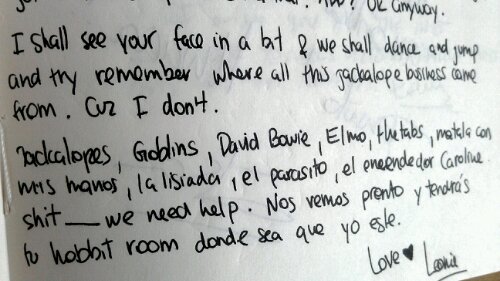 I shall see your face in a bit & we shall dance and jump
and try remember where all this jackalope business came
from. Cuz I don't.
Jackalopes, Goblins, David Bowie, Elmo, thetabs, matala con
mis manos, la lisiada, el parasito, el encendedor Caroline.
shit — we need help. Nos vemos pronto y tendrás
tu hobbit room donde sea que yo este.
Love ♥ Leonie